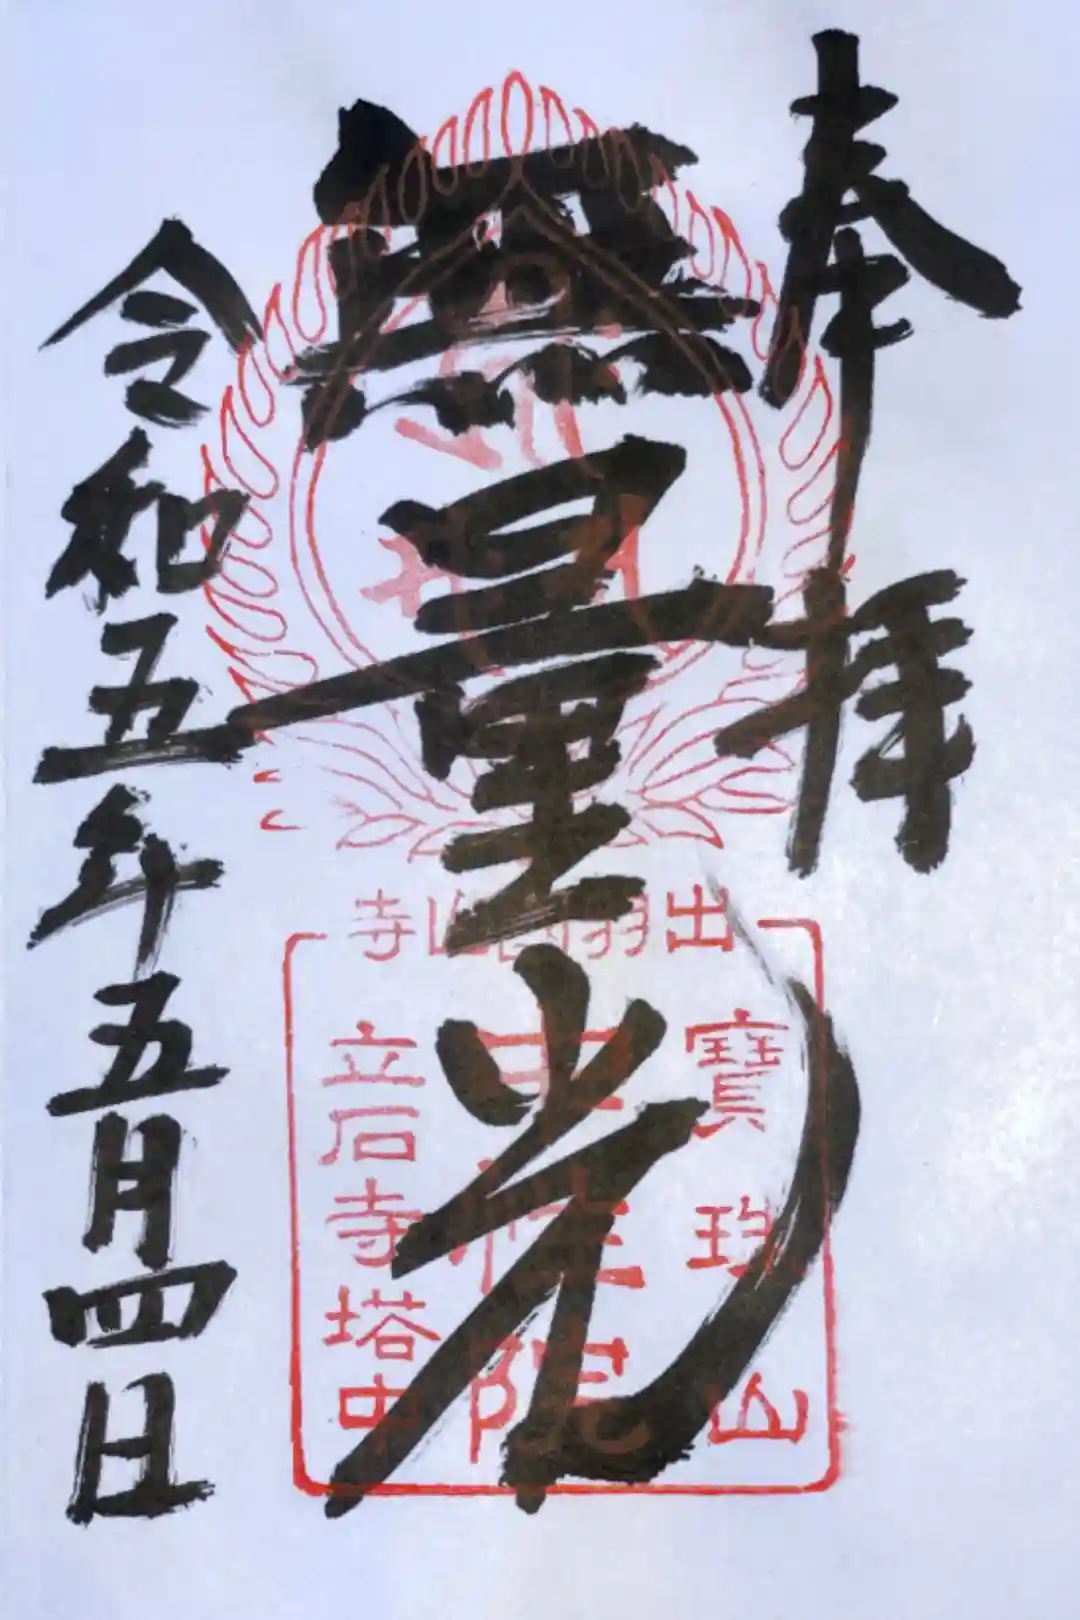 奉拝
無量光
令和五年五月四日
出羽國山寺
寶珠山
性院
立石寺塔中